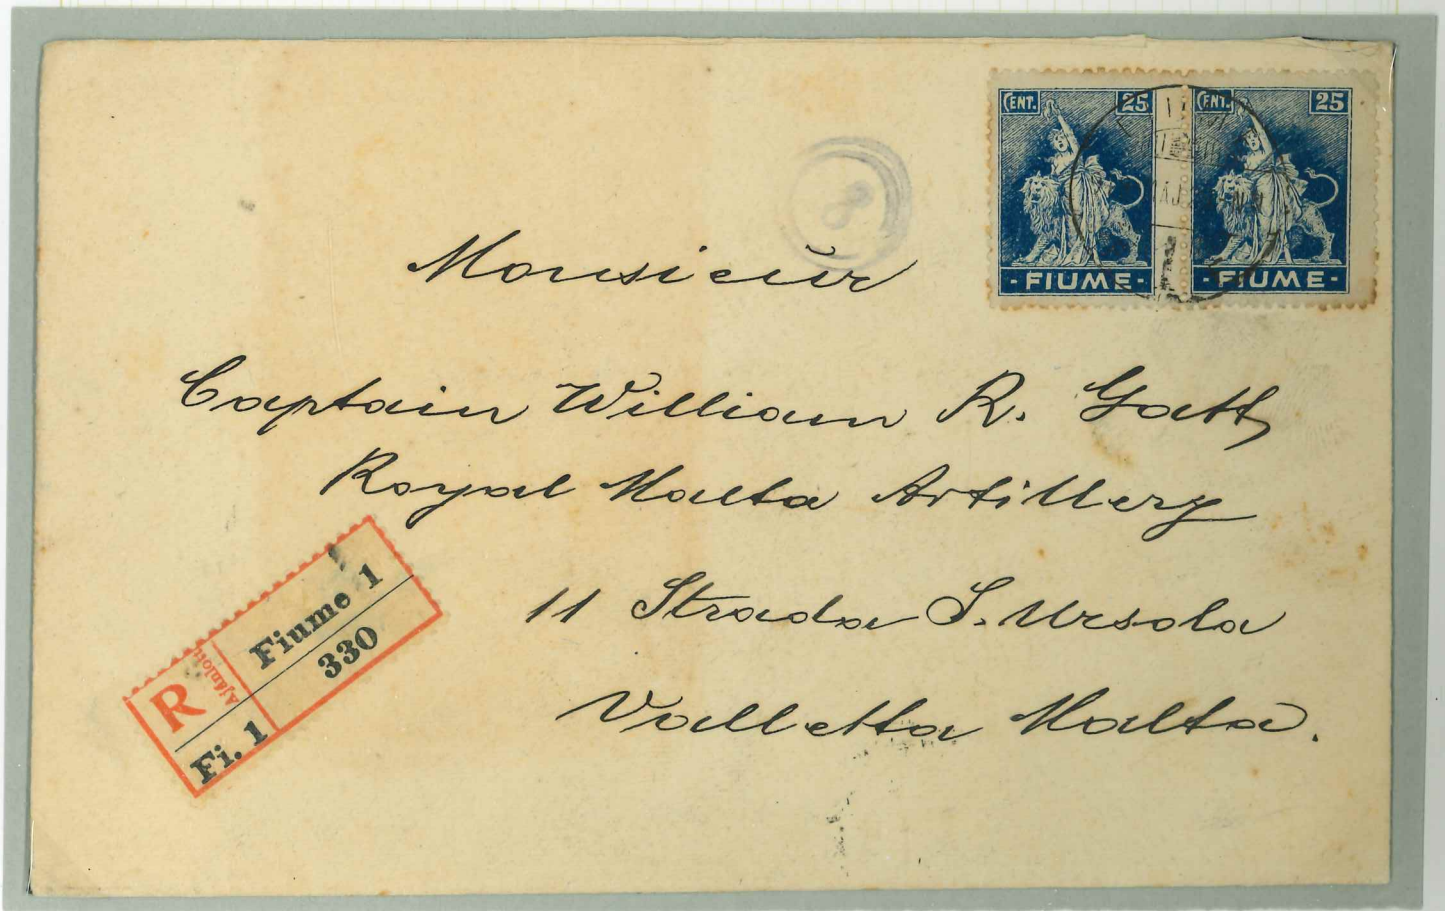 CENT. 25
- FIUME -
CENT. 25
- FIUME -
8
Monsieur
Captain William R. Gatt
Royal Malta Artillery
11 Strada S. Ursola
Valletta Malta.
R
Ajánlott
Fiume 1
330
Fi. 1